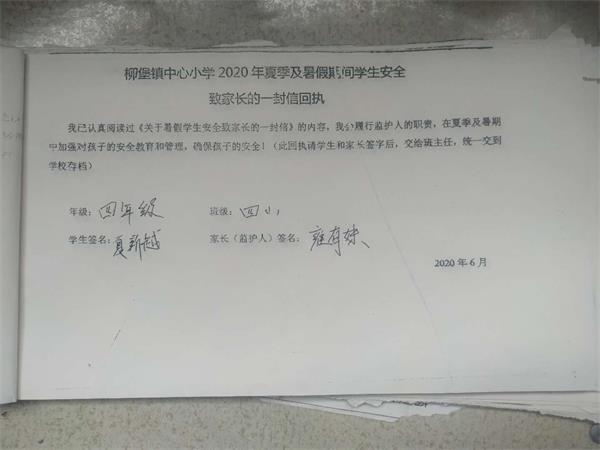 柳堡镇中心小学 2020 年夏季及暑假期间学生安全
致家长的一封信回执
我已认真阅读过《关于暑假学生安全致家长的一封信》的内容，我会履行监护人的职责，在夏季及暑期
中加强对孩子的安全教育和管理，确保孩子的安全！（此回执请学生和家长签字后，交给班主任，统一交到
学校存档）
年级：四年级 班级：四
学生签名：夏新越 家长（监护人）签名：雍有妹
2020 年 6 月